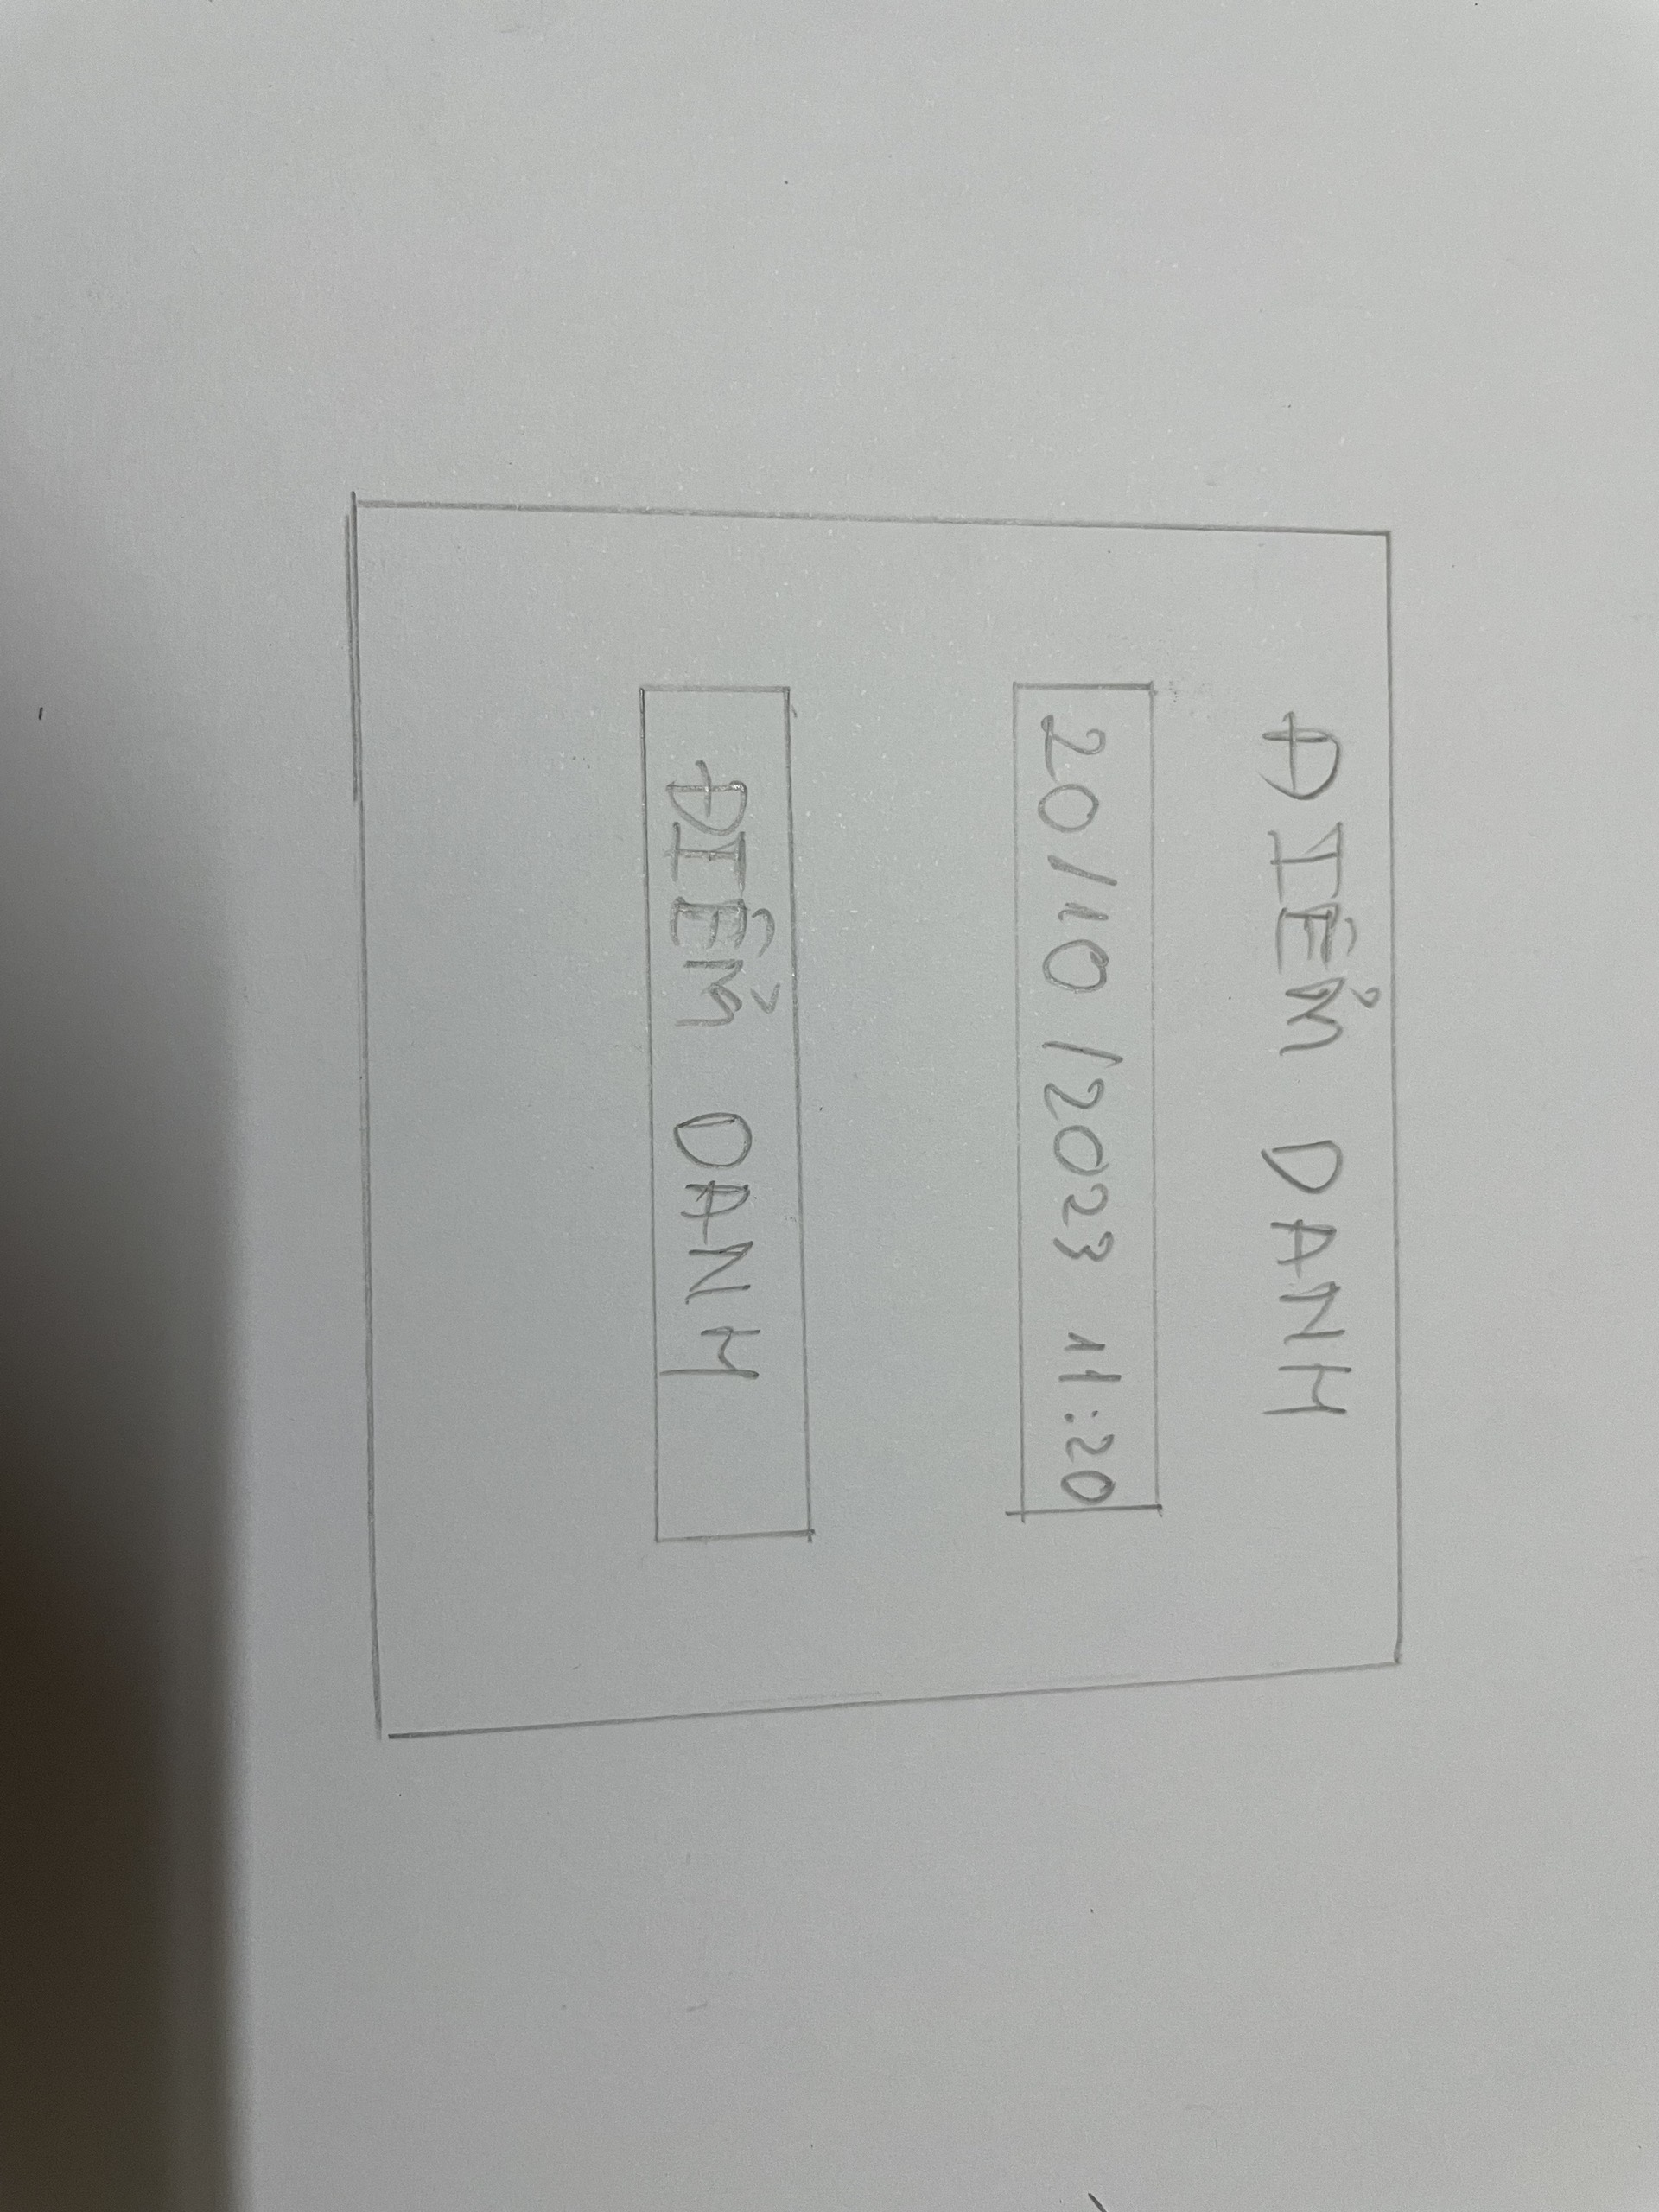 ĐIỂM DANH
20/10/2023 11:20
ĐIỂM DANH